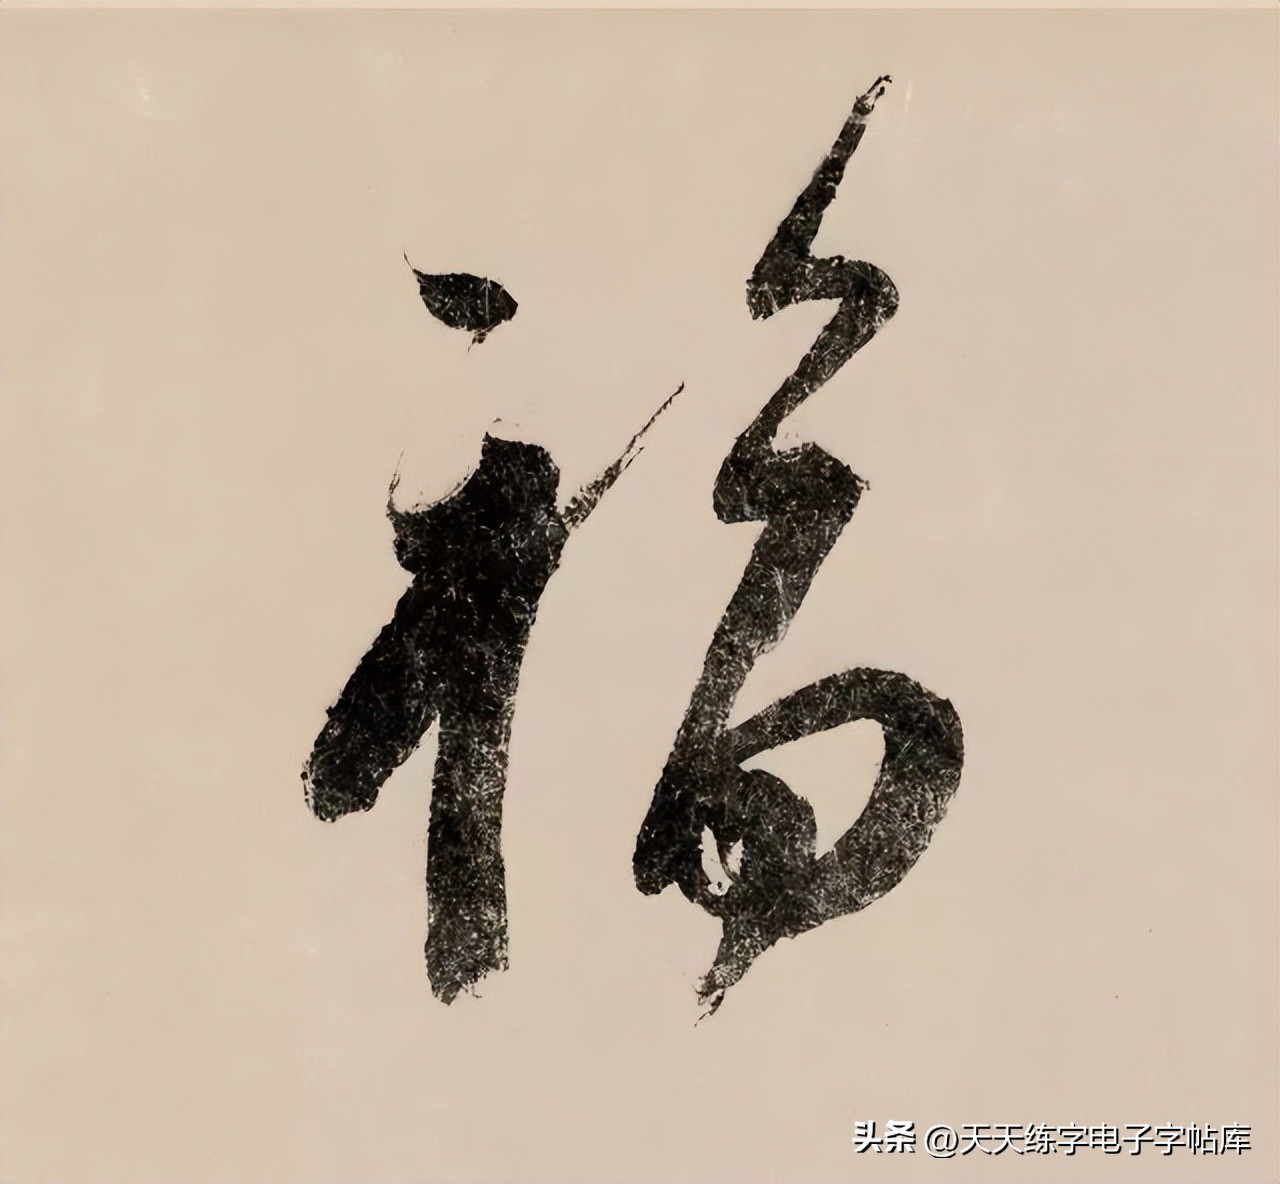 福
头条 @天天练字电子字帖库